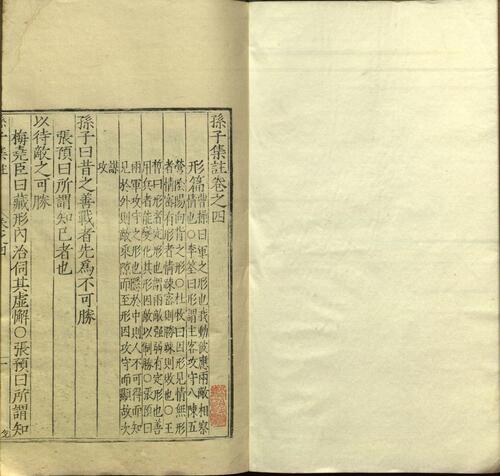 孫子集註卷之四
形篇曹操曰軍之形也我動彼應兩敵相察
情也○李筌曰形謂主客攻守八陳五
營陰陽向背之形○杜牧曰因形見情無形
者情密有形者情疎密則勝疎則敗也○王
晳曰形者定形也謂兩敵強弱有定形也善
用兵者能變化其形因敵以制勝○張預曰
兩軍攻守之形也隱於中則人不可得而知
見於外則敵乘隙而至形因攻守而顯故次
謀攻
孫子曰昔之善戰者先為不可勝
張預曰所謂知己者也
以待敵之可勝
梅堯臣曰藏形內治伺其虛懈○張預曰所謂知
孫子集註 卷之四 一